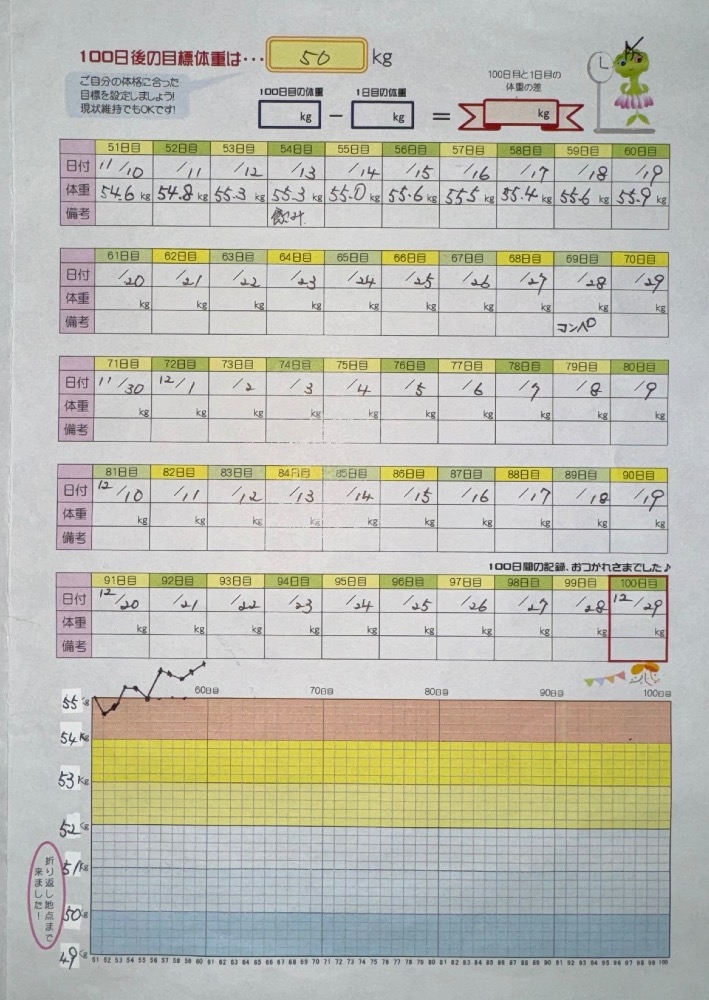 100日後の目標体重は・・・ 50 kg
ご自分の体格に合った
目標を設定しましょう!
現状維持でもOKです!
100日目の体重
kg
−
1日目の体重
kg
=
100日目と1日目の
体重の差
kg
51日目 52日目 53日目 54日目 55日目 56日目 57日目 58日目 59日目 60日目
日付 11/10 /11 /12 /13 /14 /15 /16 /17 /18 /19
体重 54.6 kg 54.8 kg 55.3 kg 55.3 kg 55.0 kg 55.6 kg 55.5 kg 55.4 kg 55.6 kg 55.9 kg
備考 飲み
61日目 62日目 63日目 64日目 65日目 66日目 67日目 68日目 69日目 70日目
日付 /20 /21 /22 /23 /24 /25 /26 /27 /28 /29
体重 kg kg kg kg kg kg kg kg kg kg
備考 コンペ
71日目 72日目 73日目 74日目 75日目 76日目 77日目 78日目 79日目 80日目
日付 11/30 12/1 /2 /3 /4 /5 /6 /7 /8 /9
体重 kg kg kg kg kg kg kg kg kg kg
備考
81日目 82日目 83日目 84日目 85日目 86日目 87日目 88日目 89日目 90日目
日付 12/10 /11 /12 /13 /14 /15 /16 /17 /18 /19
体重 kg kg kg kg kg kg kg kg kg kg
備考
100日間の記録、おつかれさまでした♪
91日目 92日目 93日目 94日目 95日目 96日目 97日目 98日目 99日目 100日目
日付 12/20 /21 /22 /23 /24 /25 /26 /27 /28 12/29
体重 kg kg kg kg kg kg kg kg kg kg
備考
60日目 70日目 80日目 90日目 100日目
55kg
54kg
53kg
52kg
51kg
50kg
49kg
折り返し地点まで
来ました!
51 52 53 54 55 56 57 58 59 60 61 62 63 64 65 66 67 68 69 70 71 72 73 74 75 76 77 78 79 80 81 82 83 84 85 86 87 88 89 90 91 92 93 94 95 96 97 98 99 100